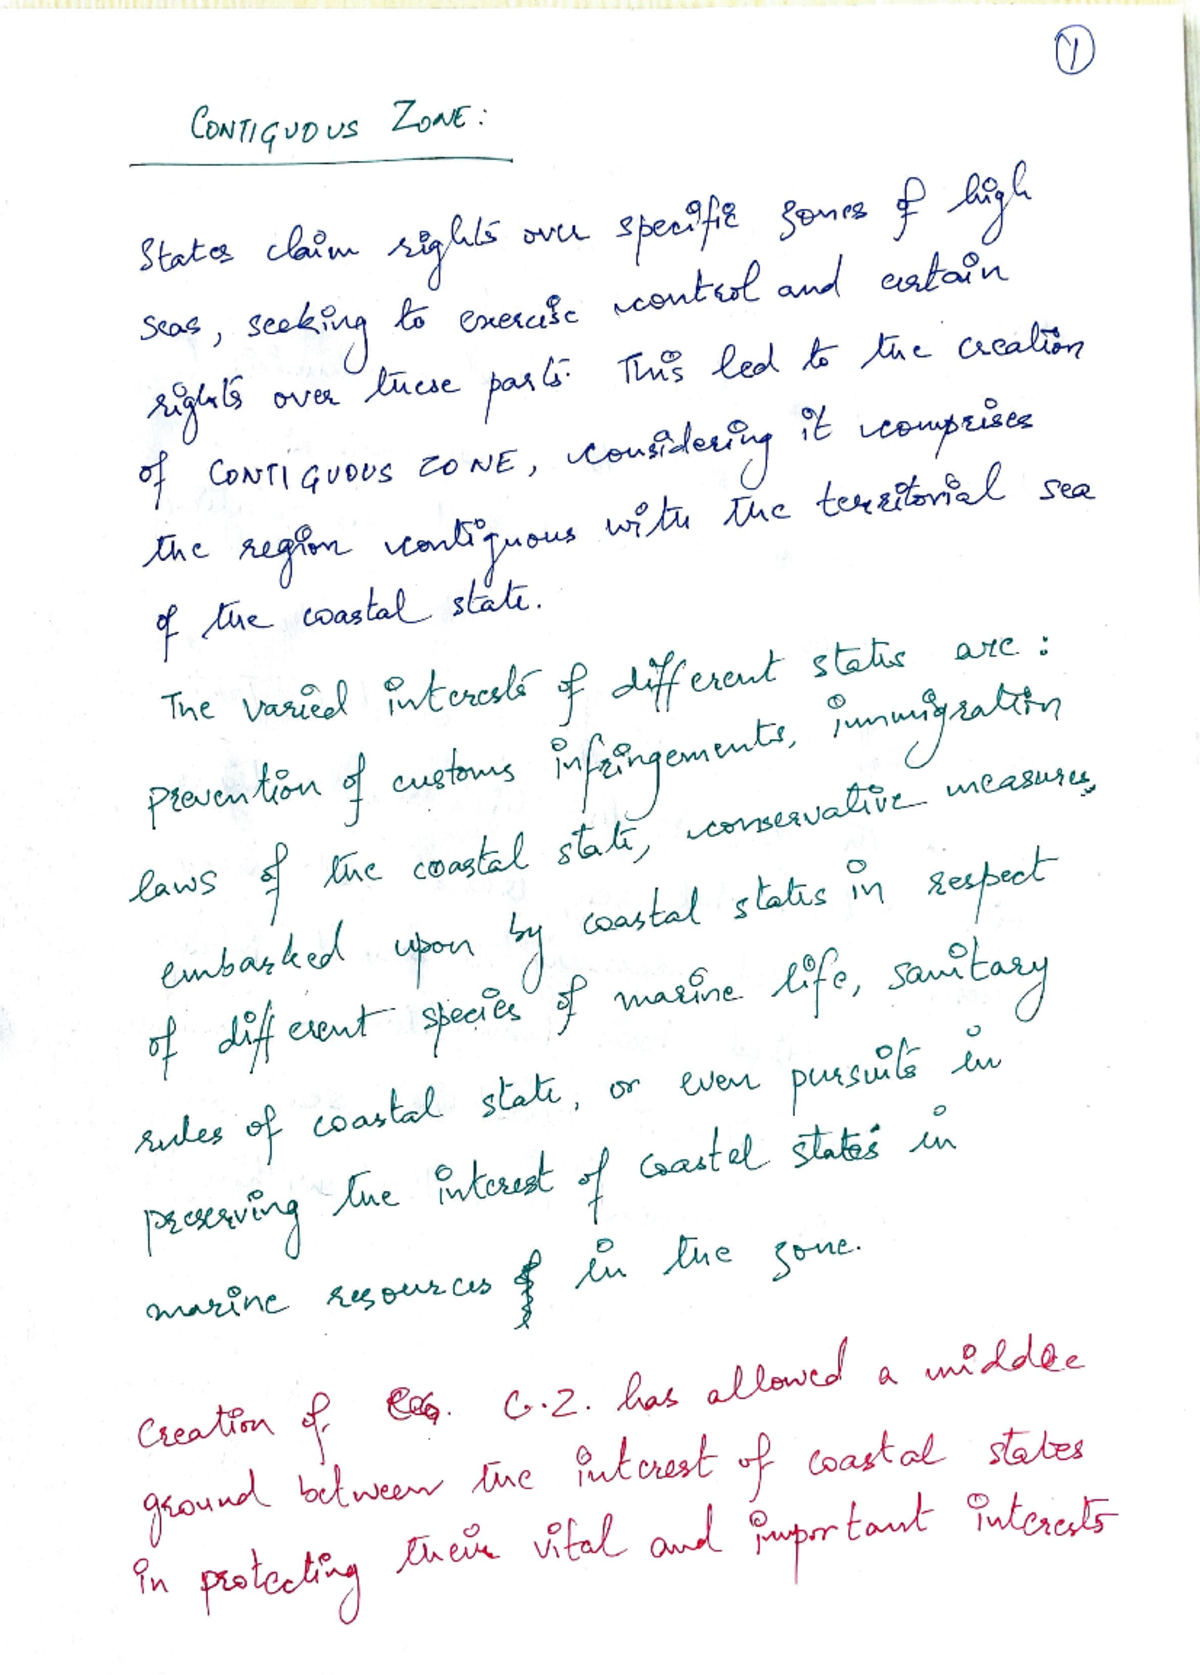 1
CONTIGUOUS ZONE:
States claim rights over specific zones of high
seas, seeking to exercise control and certain
rights over these parts. This led to the creation
of CONTIGUOUS ZONE, considering it comprises
the region contiguous with the territorial sea
of the coastal state.
The varied interests of different states are:
prevention of customs infringements, immigration
laws of the coastal state, conservative measures
embarked upon by coastal states in respect
of different species of marine life, sanitary
rules of coastal state, or even pursuits in
preserving the interest of coastal states in
marine resources in the zone.
Creation of C.Z. has allowed a middle
ground between the interest of coastal states
in protecting their vital and important interests